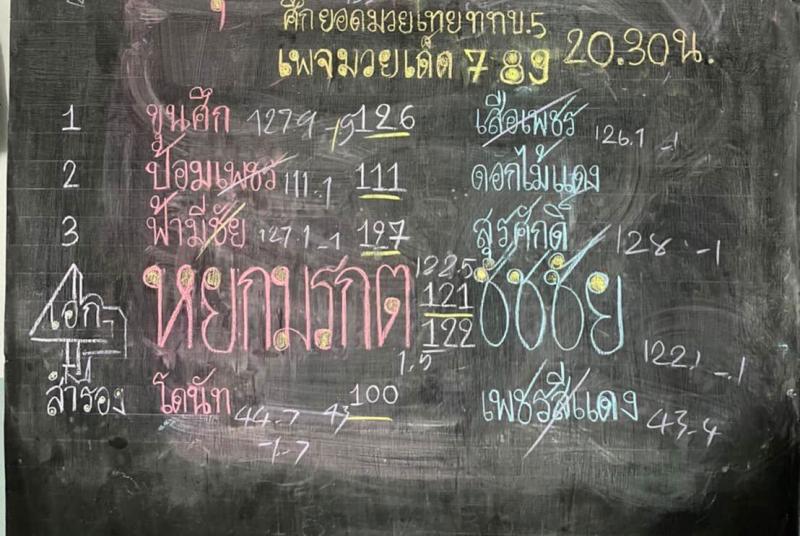 ศึกยอดมวยไทย ททบ.5
เพจมวยเด็ด 789 20.30 น.
1 ขุนศึก 127.9 126 เสือเพชร 126.1 -1
2 ป้อมเพชร 111.1 111 ดอกไม้แดง
3 ฟ้ามีชัย 127.1 -1 127 สุรศักดิ์ 128 -1
122.5
เอก หยกมรกต 121 ชัชชัย
122
1.5 122.1 -1
สำรอง โดนัท 44.7 43 100 เพชรสีแดง 43.4
-1.7